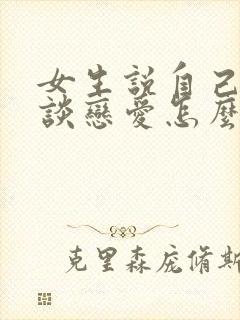 女生說自己
談戀愛怎麼
克里森庞脩斯